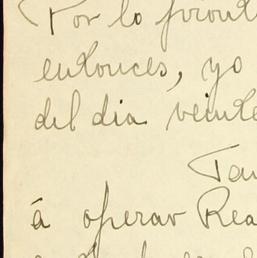 Por lo pront
entonces, yo
del dia veinte
Tan
á operar Rea